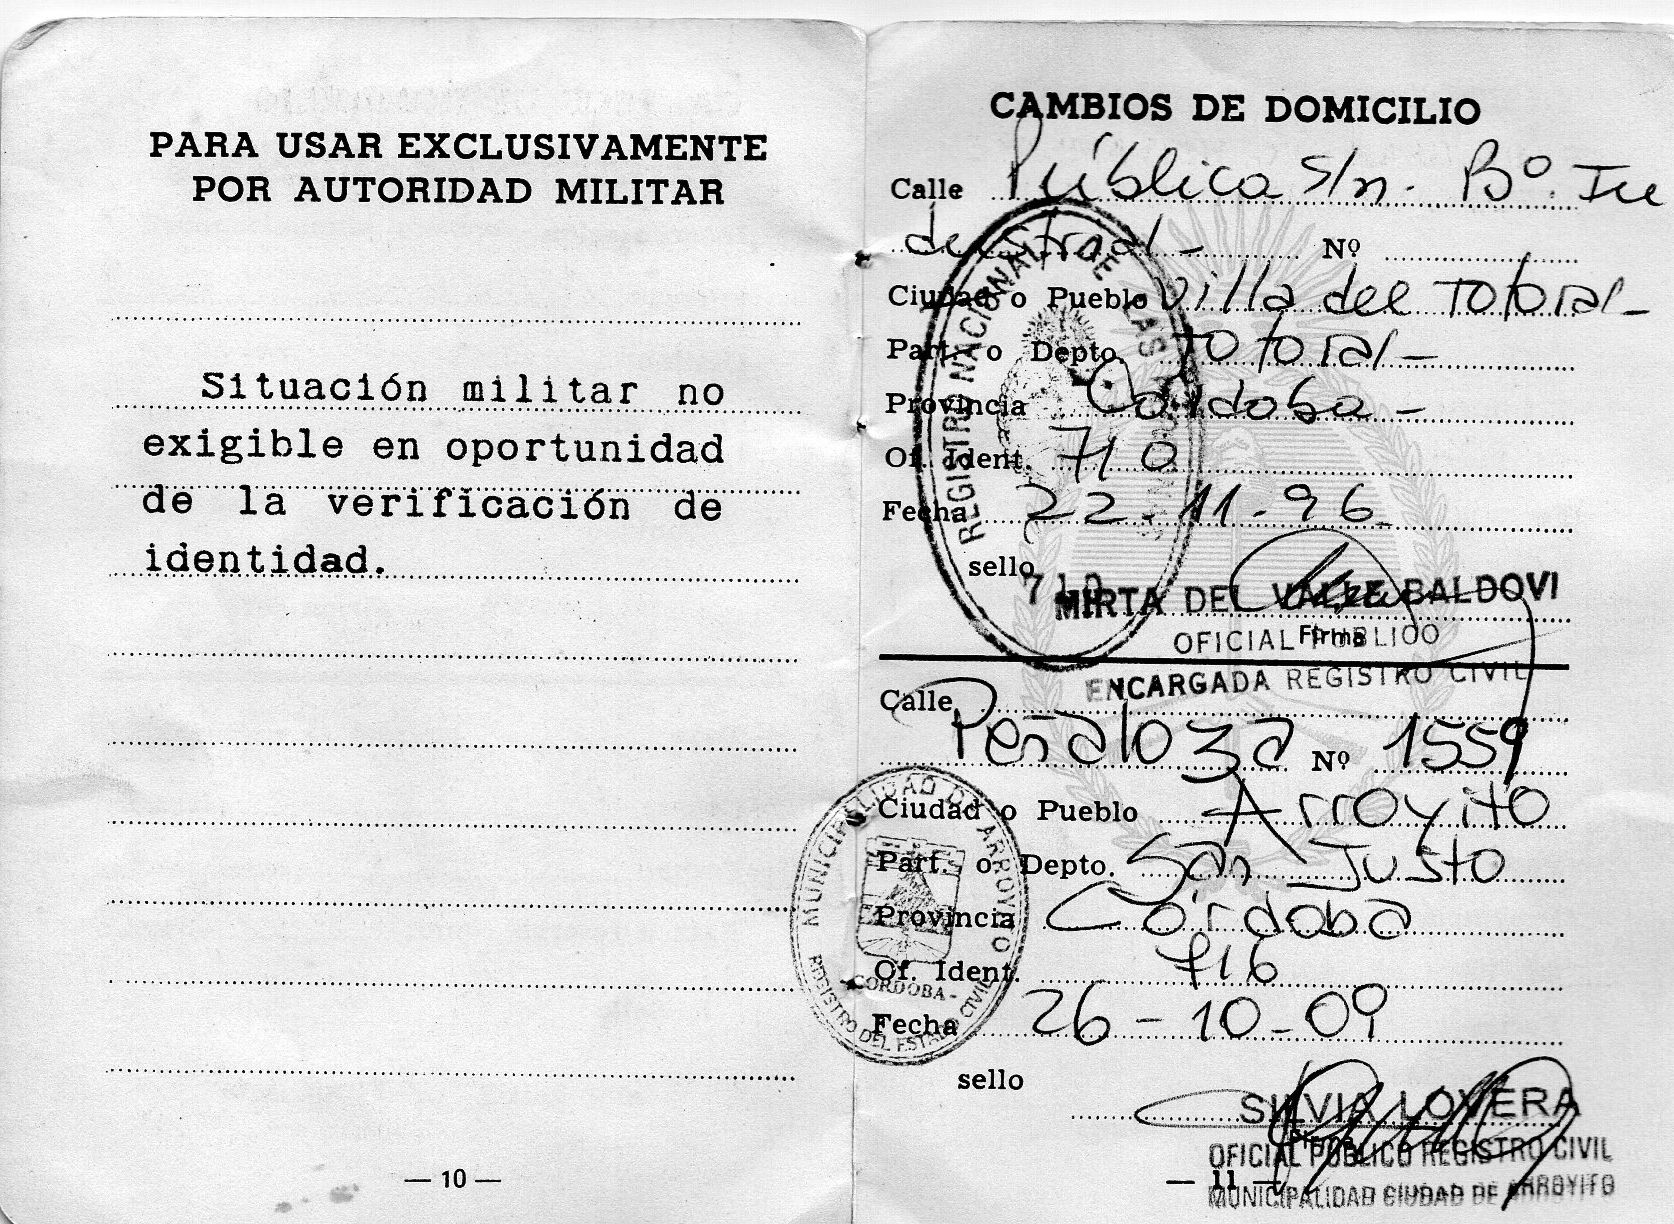 PARA USAR EXCLUSIVAMENTE
POR AUTORIDAD MILITAR
Situación militar no
exigible en oportunidad
de la verificación de
identidad.
— 10 —
CAMBIOS DE DOMICILIO
Calle Pública s/n. Bº. In
dustrial - Nº
Ciudad o Pueblo Villa del Totoral -
Part. o Depto. Totoral -
Provincia Córdoba -
Of. Ident. 710
Fecha 22 - 11 - 96
sello
REGISTRO NACIONAL DE LAS PERSONAS
710
MIRTA DEL VALLE BALDOVI
Firma
OFICIAL PUBLICO
ENCARGADA REGISTRO CIVIL
Calle
Peñaloza Nº 1559
Ciudad o Pueblo Arroyito
Part. o Depto. San Justo
Provincia Córdoba
Of. Ident. 716
Fecha 26 - 10 - 09
sello
MUNICIPALIDAD DE ARROYITO
- CORDOBA -
REGISTRO DEL ESTADO CIVIL
SILVIA LOVERA
Firma
OFICIAL PUBLICO REGISTRO CIVIL
MUNICIPALIDAD CIUDAD DE ARROYITO
— 11 —